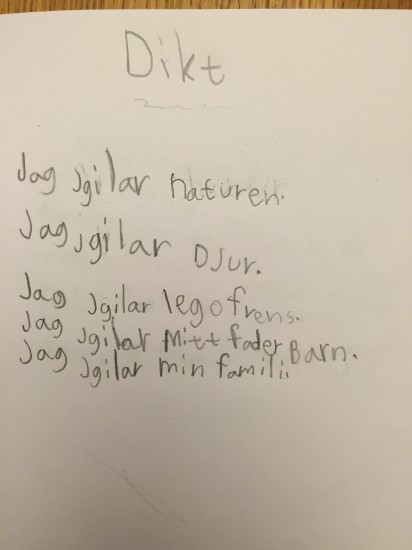 Dikt
Jag Jgilar naturen.
Jag jgilar DJur.
Jag Jgilar legofrens.
Jag Jgilar Mitt fader Barn.
Jag Jgilar min familii